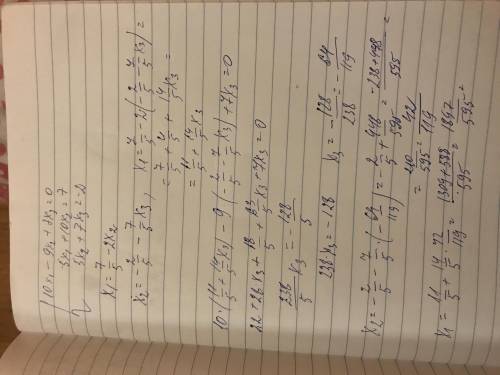 10x₁ - 9x₂ + 7x₃ = 0
5x₁ + 10x₂ = 7
5x₂ + 7x₃ = -2
x₁ = 7/5 - 2x₂
x₂ = -2/5 - 7/5 x₃, x₁ = 7/5 - 2(-2/5 - 7/5 x₃) =
= 7/5 + 4/5 + 14/5 x₃ =
= 11/5 + 14/5 x₃
10·(11/5 + 14/5 x₃) - 9(-2/5 - 7/5 x₃) + 7x₃ = 0
22 + 28x₃ + 18/5 + 63/5 x₃ + 7x₃ = 0
238/5 x₃ = -128/5
238·x₃ = -128 x₃ = -128/238 = -64/119
x₂ = -2/5 - 7/5·(-64/119) = -2/5 + 448/595 = -238+448/595 =
= 210/595 = 42/119